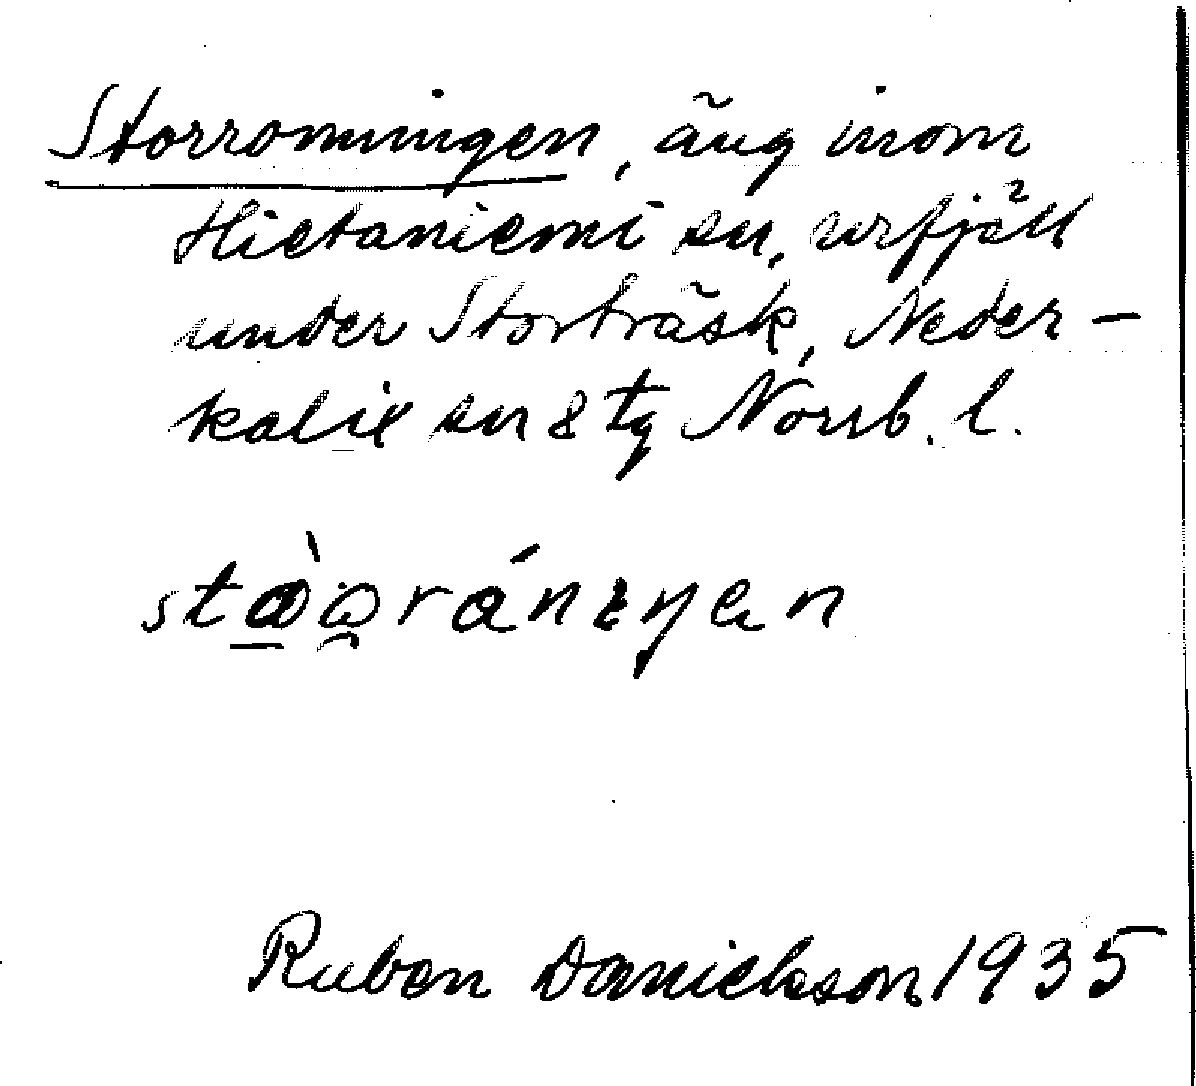 Storronningen, äng inom
Hietaniemi sn, urfjäll
under Storträsk, Neder-
kalix sn & tg Norrb. l.
Ruben Danielsson 1935